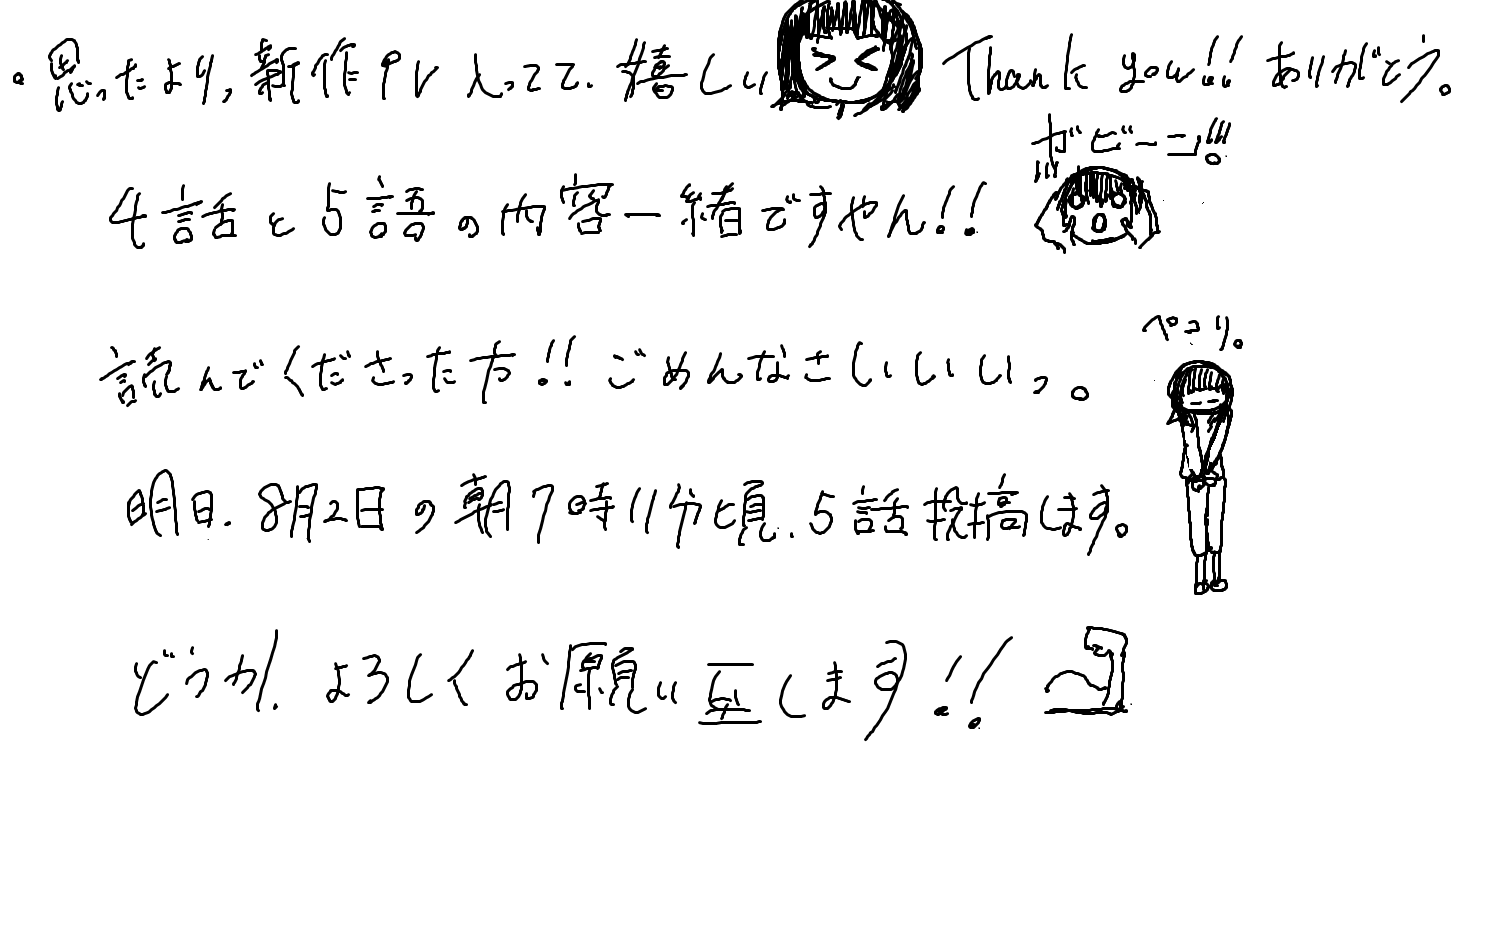 ・思ったより,新作PV入ってて、嬉しい Thank you!! ありがとう。
ガビーン!!!
4話と5語の内容一緒ですやん!!
ペコリ。
読んでくださった方!!ごめんなさいいいいっ。
明日、8月2日の朝7時11分頃、5話投稿します。
どうか、よろしくお願い致します!!